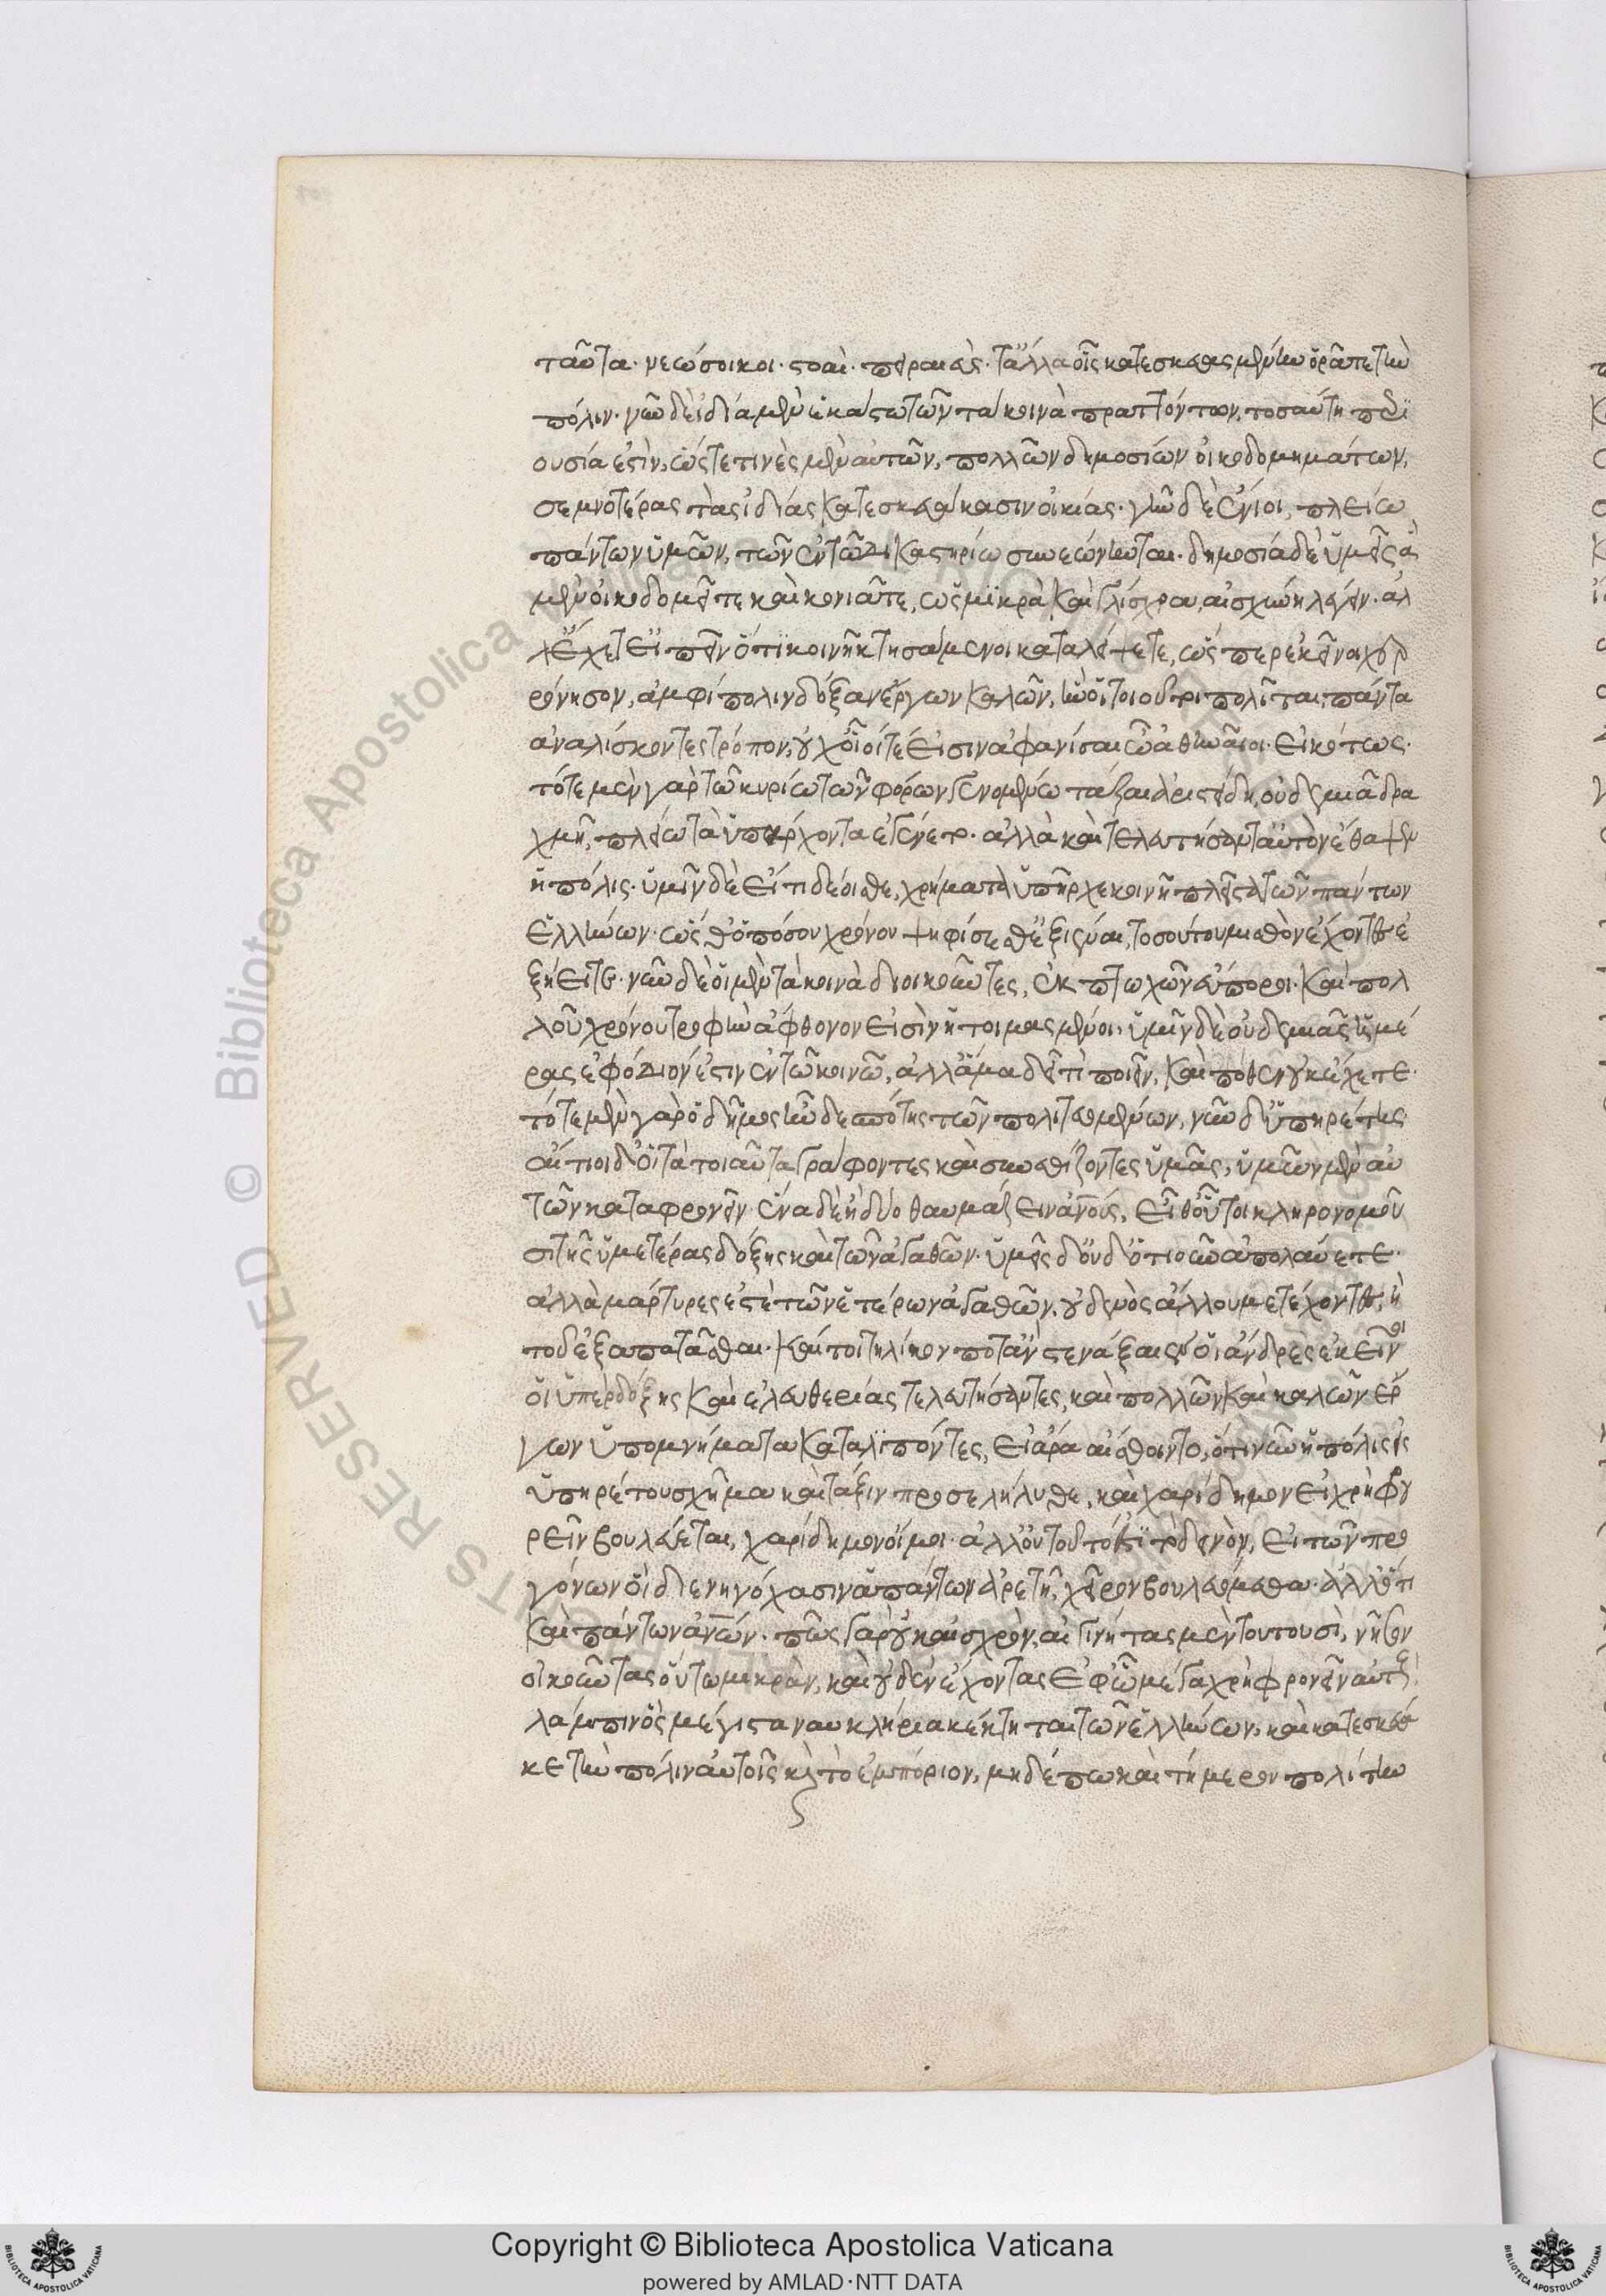 ταῦτα· νεώσοικοι· στοαὶ· πειραιεύς· τἄλλα οἷς κατεσκευασμένην ὁρᾶτε τὴν
πόλιν· νῦν δὲ ἰδία μὲν ἑκάστω τῶν τὰ κοινὰ πραττόντων, τοσαύτη περϊ
ουσία ἐστὶν, ὥστε τινὲς μὲν αὐτῶν, πολλῶν δημοσίων οἰκοδομημάτων,
σεμνοτέρας τὰς ἰδίας κατεσκευάκασιν οἰκίας· γῆν δὲ ἔνιοι, πλείω
πάντων ὑμῶν, τῶν ἐν τῶ δικαστηρίω συνεώνηνται· δημοσία δὲ ὑμεῖς ἃ
μὲν οἰκοδομεῖτε καὶ κονιᾶτε, ὡς μϊκρὰ καὶ γλίσχρα, αἰσχύνη λέγειν· ἀλ
λ' ἔχετε εἰπεῖν ὅ τι κοινῆ κτησάμενοι καταλείψετε, ὥσπερ ἐκεῖνοι χερ
ρόνησον, ἀμφίπολιν δόξαν ἔργων καλῶν, ἣν οἱ τοιοῦτοι πολῖται πάντα
ἀναλίσκοντες τρόπον, οὐχ οἷοί τέ εἰσιν ἀφανίσαι ὦ ἀθηναῖοι· εἰκότως·
τότε μὲν γὰρ τῶ κυρίω τῶν φόρων γενομένω τάξαι ἀριστείδη, οὐδεμιᾶ δρα
χμῆ, πλείω τὰ ὑπάρχοντα ἐγένετο· ἀλλὰ καὶ τελευτήσαντ' αὐτὸν ἔθαψεν
ἡ πόλις· ὑμῖν δὲ εἴ τι δέοισθε, χρήματα ὑπῆρχε κοινῆ πλεῖστα τῶν πάντων
ἑλλήνων· ὥσθ' ὁπόσον χρόνον ψηφίσεσθ' ἐξιέναι, τοσούτου μισθὸν ἔχοντες ἐ
ξήειτε· νῦν δὲ οἱ μὲν τὰ κοινὰ διοικοῦντες, ἐκ πτωχῶν εὔποροι· καὶ πολ
λοῦ χρόνου τροφὴν ἄφθονον εἰσὶν ἡτοιμασμένοι· ὑμῖν δὲ οὐδεμιᾶς ἡμέ
ρας ἐφόδιόν ἐστιν ἐν τῶ κοινῶ, ἀλλ' ἅμα δεῖ τὶ ποιεῖν, καὶ πόθεν οὐκ ἔχετε·
τότε μὲν γὰρ ὁ δῆμος ἦν δεσπότης τῶν πολιτευομένων, νῦν δ' ὑπηρέτης·
αἴτιοι δ' οἱ τὰ τοιαῦτα γράφοντες καὶ συνεθίζοντες ὑμᾶς, ὑμῶν μὲν αὐ
τῶν καταφρονεῖν· ἕνα δὲ ἢ δύο θαυμάζειν ἀνους, εἶθ' οὗτοι κληρονομοῦ
σι τῆς ὑμετέρας δόξης καὶ τῶν ἀγαθῶν· ὑμεῖς δ' οὐδ' ὁτιοῦν ἀπολαύετε·
ἀλλὰ μάρτυρές ἐστε τῶν ἑτέρων ἀγαθῶν, οὐδενὸς ἄλλου μετέχοντες, ἢ
τοῦ ἐξαπατᾶσθαι· καίτοι πηλίκον ποτ' ἂν στενάξαιεν οἱ ἄνδρες ἐκεῖνοι
οἱ ὑπὲρ δόξης καὶ ἐλευθερίας τελευτήσαντες, καὶ πολλῶν καὶ καλῶν ἔρ
γων ὑπομνήματα καταλϊπόντες, εἰ ἄρα αἴσθοιντο, ὅτι νῦν ἡ πόλις εἰς
ὑπηρέτου σχῆμα καὶ τάξιν προσελήλυθε, καὶ χαρίδημον εἰ χρὴ φρου
ρεῖν βουλεύεται, χαρίδημον οἴμοι· ἀλλ' οὐ τοῦτό ἐστϊ τὸ δεινὸν, εἰ τῶν προ
γόνων οἳ διενηνόχασιν ἁπάντων ἀρετῆ, χεῖρον βουλευόμεθα· ἀλλ' ὅτι
καὶ πάντων ἀνων· πῶς γὰρ οὐκ αἰσχρὸν, αἰγινήτας μὲν τουτουσὶ, νῆσον
οἰκοῦντας οὕτω μικρὰν, καὶ οὐδὲν ἔχοντας ἐφ' ὧ μέγα χρὴ φρονεῖν αὐτοὺς,
λάμπιν ὃς μέγιστα ναυκλήρια κέκτηται τῶν ἑλλήνων, καὶ κατεσκεύα
κε τὴν πόλιν αὐτοῖς καὶ τὸ ἐμπόριον, μηδέπω καὶ τήμερον πολίτην